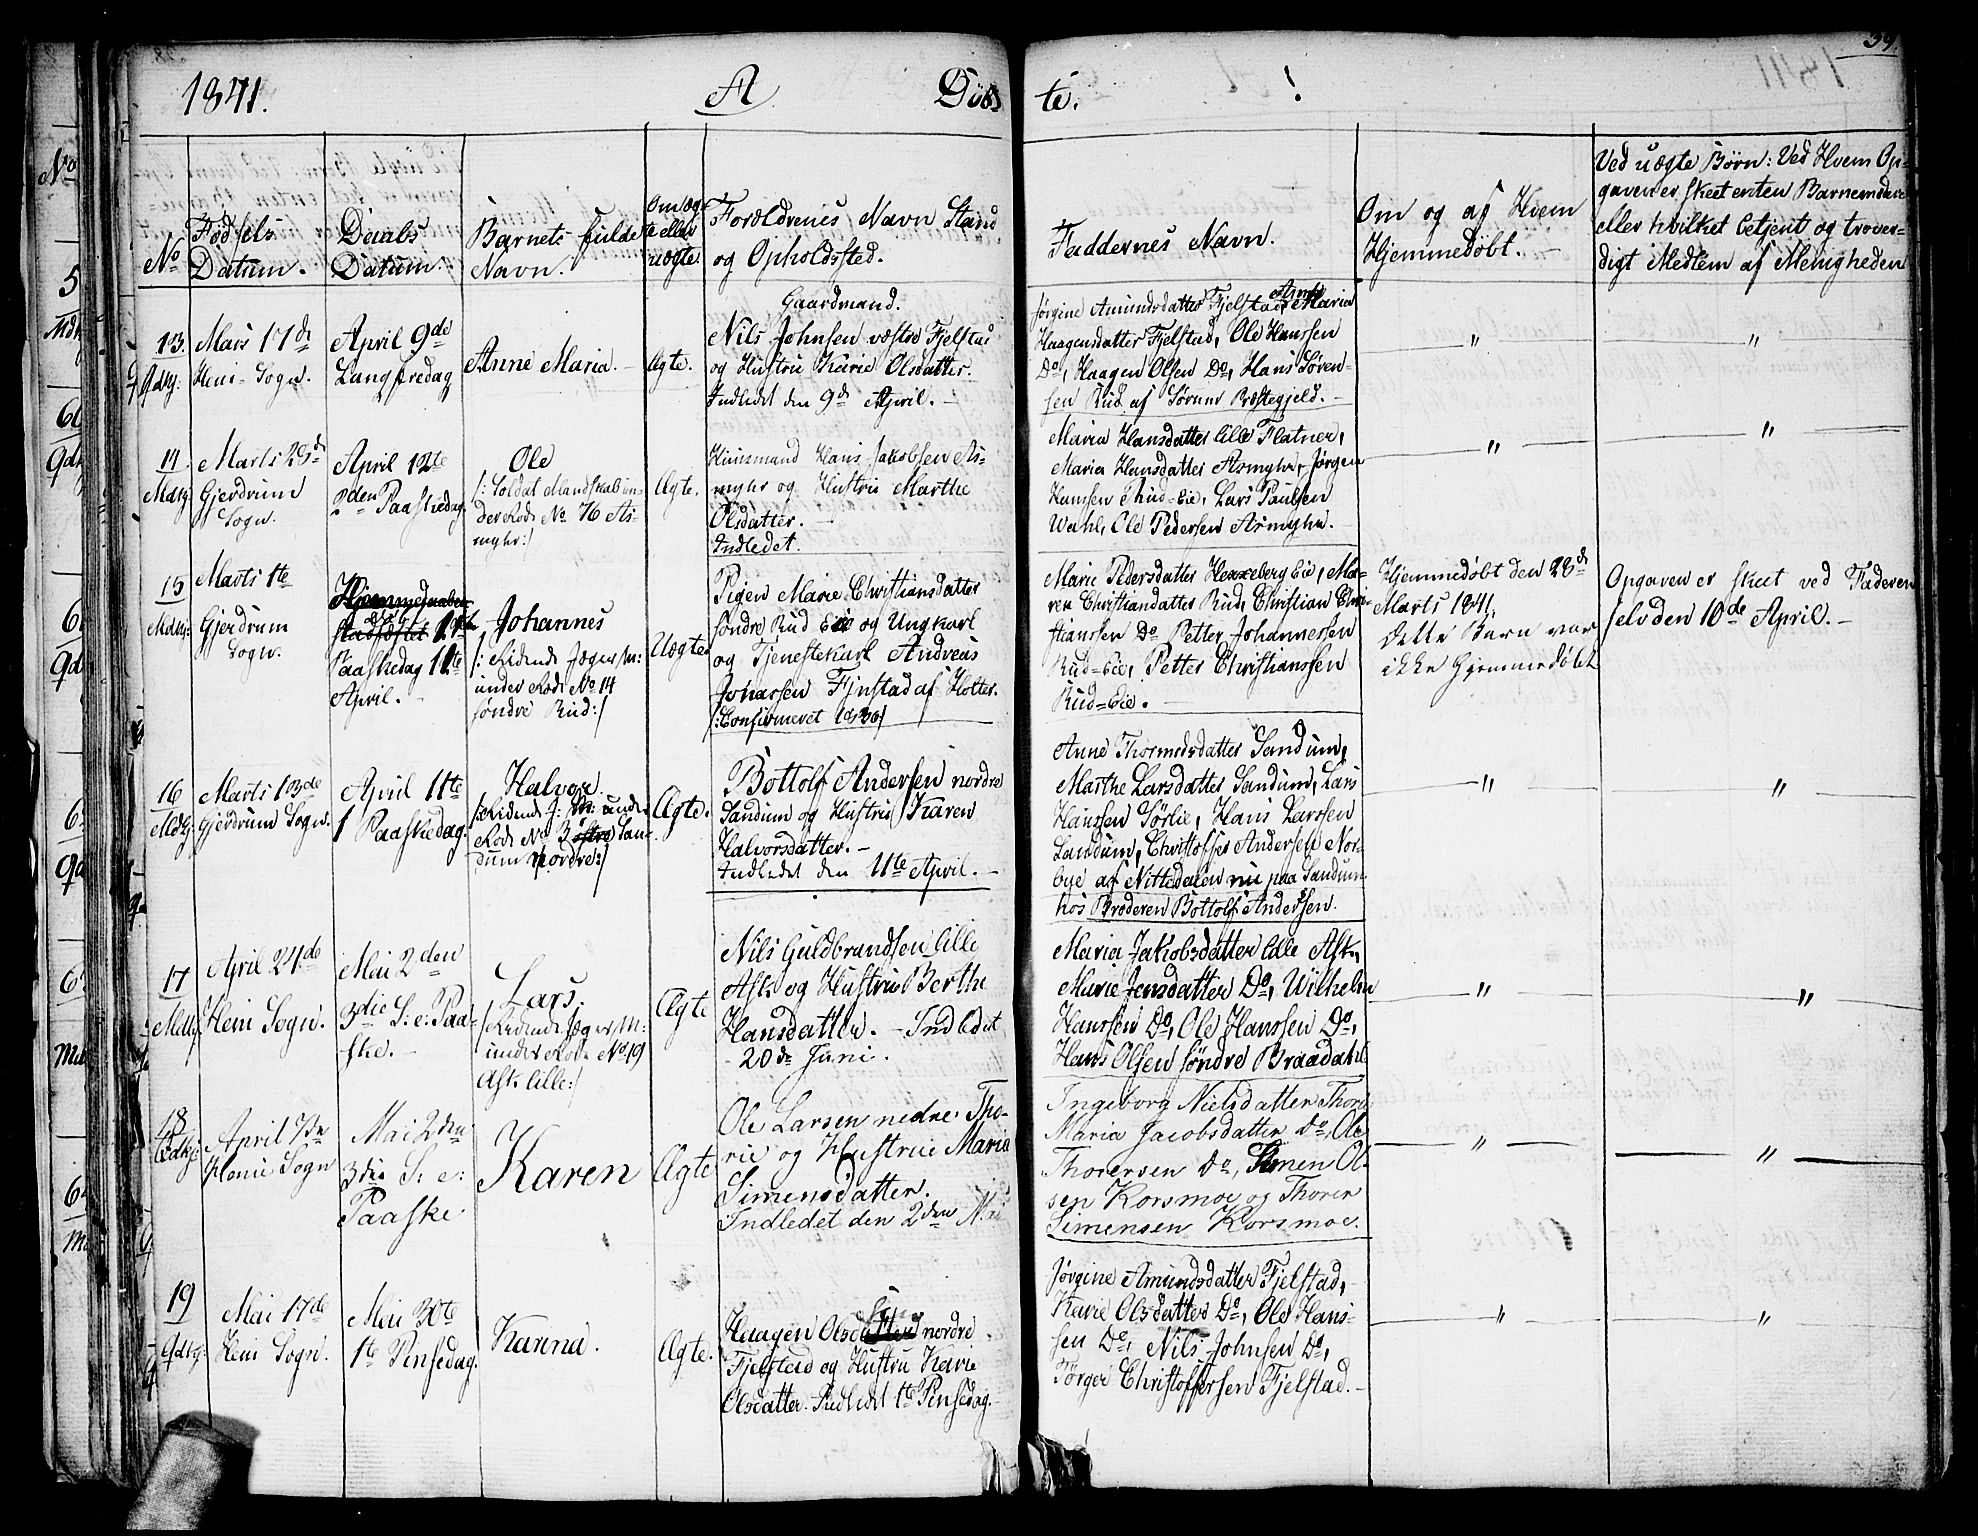 39.
1841. A Døb- te.
No
Fødsels
Datum.
Daabs
Datum.
Barnets fulde
Navn.
Om æg-
te eller
uægte.
Forældrenes Navn Stand
og Opholdssted.
Faddernes Navn.
Om og af Hvem
Hjemmedøbt.
Ved uægte Børn: Ved Hvem Op-
gaven er skeet enten
eller hvilket betjent og trover-
digt Medlem af Menigheden
13.
Gdbg:
Mars 17de
Heni-Sogn.
April 9de
Langfredag
Anne Maria.
Ægte.
Gaardmand.
Nils Johnsen væstre Fjelstad
og Hustrue Karie Olsdatter.
Indledet den 9de April.
Jørgine Amundsdatter Fjelstad, Anne Maria
Haagensdatter Fjelstad, Ole Hanssen
Do, Haagen Olsen Do, Hans Søren-
sen Rud af Sørum Præstegjeld.
"
"
14
Mdbg:
Marts 28de
Gjerdrum
Sogn.
April 12te
2den Paaskedag
Ole
/: Soldat Mandskab un-
der Rode No 76 As-
myhr:/
Ægte.
Huusmand Hans Jakobsen As-
myhr og Hustru Marthe
Olsdatter.
Indledet.
Maria Hansdatter lille Flatner,
Maria Hansdatter Asmyhr, Jørgen
Hansen Thud-Eie, Lars Paulsen
Wahl, Ole Pedersen Asmyhr.
"
"
15
Mdbg:
Marts 1te
Gjerdrum
Sogn.
Paaskedag 11te
April.
Johannes
/: Ridende Jæger M:
under Rode No 14
søndre Rud:/
Uægte
Pigen Marie Christiansdatter
søndre Rud Eie og Ungkarl
og Tjenestekarl Andreas
Johansen Fjnstad af Holter.
/:Confirmeret 1830/
Marie Pedersdatter Hexeberg Eie, Ma-
ren Christiandatter Rud, Christian Chri-
stianssen Do Petter Johannessen
Rud-Eie, Petter Christianssen
Rud-Eie.
Hjemmedøbt den 28de
Marts 1841.
dette Barn var
ikke Hjemmedøbt
Opgaven er skeet ved Faderen
selv den 10de April.
16
Mdbg:
Marts 13de
Gjerdrum Sogn.
April 11te
1 Paaskedag.
Halvor.
/:Ridende J: M: under
Rode No 3 østre San-
dum nordre:/
Ægte.
Bottolf Andersen nordre
Sandum og Hustru Karen
Halvorsdatter.
Indledet den 11te April.
Anne Thormodsdatter Sandum,
Marthe Larsdatter Sandum, Lars
Hanssen Sørlie, Hans Larssen
Sandum, Christoffer Andersen Nor-
bye af Nittedalen nu paa Sandum
hos Broderen Bottolf Andersen.
"
"
17
Mdbg.
April 24de
Heni Sogn.
Mai 2den
3die S: e: Paa-
ske.
Lars.
/:Ridende Jæger M:
under Rode No 191
Ask lille:/
Ægte
Nils Guldbrandsen lille
Ask og Hustrue Berthe
Hansdatter. - Indledet
20de Juni.
Maria Jakobsdatter lille Ask,
Marie Jensdatter Do, Wilhelm
Hanssen Do, Ole Hanssen Do,
Hans Olsen søndre Braadahl
"
"
18
Gdbg:
April 7de
Heni Sogn
Mai 2den
3die S: e:
Paaske
Karen
Ægte
Ole Larsen nedre Tho-
rie og Hustrue Maria
Simensdatter.
Indledet den 2den Mai
Ingeborg Nielsdatter Thori
Maria Jacobsdatter do, Ole
Thorersen Do, Simen Ol-
sen Korsmoe og Thorer
Simensen Korsmoe.
"
"
19
Gdbg:
Mai 17de
Heni Sogn.
Mai 30te
1te Pinsedag.
Karina.
Ægte.
Haagen Olsen nordre
Fjelstad og Hustru Karie
Olsdatter. Indledet 1te Pinsedag.
Jørgine Amundsdatter Fjelstad,
Karie Olsdatter Do, Ole Hans-
sen Do, Nils Johnsen Do,
Tørger Christoffersen Fjelstad.
"
"